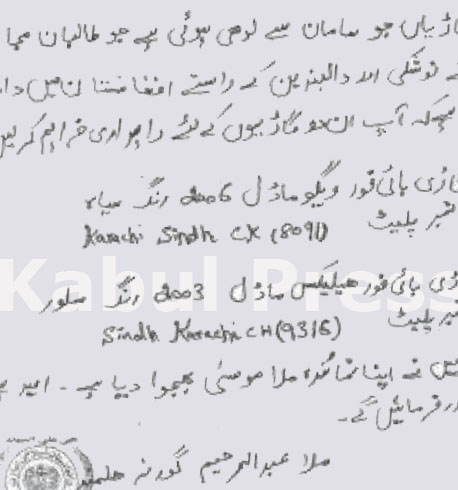 گاڑیاں جو سامان سے لوڈ ہوئی ہے جو طالبان مجا
نوشکی اور دالبندین کے راستے افغانستان میں دا
چونکہ آپ ان دو گاڑیوں کے لئے راہداری فراہم کریں
گاڑی بائی فور ویگو ماڈل 2006 رنگ سیاہ
نمبر پلیٹ Karachi Sindh CK (8091)
Kabul Press
گاڑی بائی فور ھیلیکس ماڈل 2003 رنگ سلور
نمبر پلیٹ Sindh Karachi CH (9316)
میں نے اپنا نمائندہ ملا موسیٰ بھجوا دیا ہے۔ امید ہے
فرمائیں گے۔
ملا عبدالرحیم گورنر ھلمند